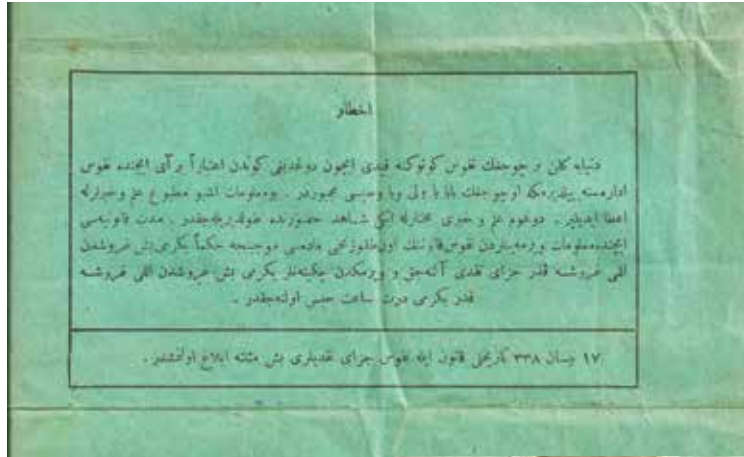 اخطار
دنیایه كلن بر چوجغك نفوس كوتوكنه قیدی ایچون دوغدیغی كوندن اعتباراً بر آی ایچنده نفوس
اداره‌سنه بیلدیرمكه او چوجغك بابا یا ولی ویا وصیسی مجبوردر . بو معلومات اشبو مطبوع علم و خبرلرله
اعطا ایدیلیر . دوغوم علم و خبری مختارله ایكی شاهد حضورنده طولدیریله‌جقدر . مدت قانونیه‌سی
ایچنده معلومات ویرمه‌ینلردن نفوس قانوننك اون طقوزنجی ماده‌سی موجبنجه حكماً یكرمی بش غروشدن
اللی غروشه قدر جزای نقدی آلنه‌جق و ویرمكدن چكینه‌نلر یكرمی بش غروشدن اللی غروشه
قدر یكرمی درت ساعت حبس اولنه‌جقدر .
١٧ نیسان ٣٣٨ تاریخلی قانون ایله نفوس جزای نقدیلری بش مثلنه ابلاغ اولنمشدر .